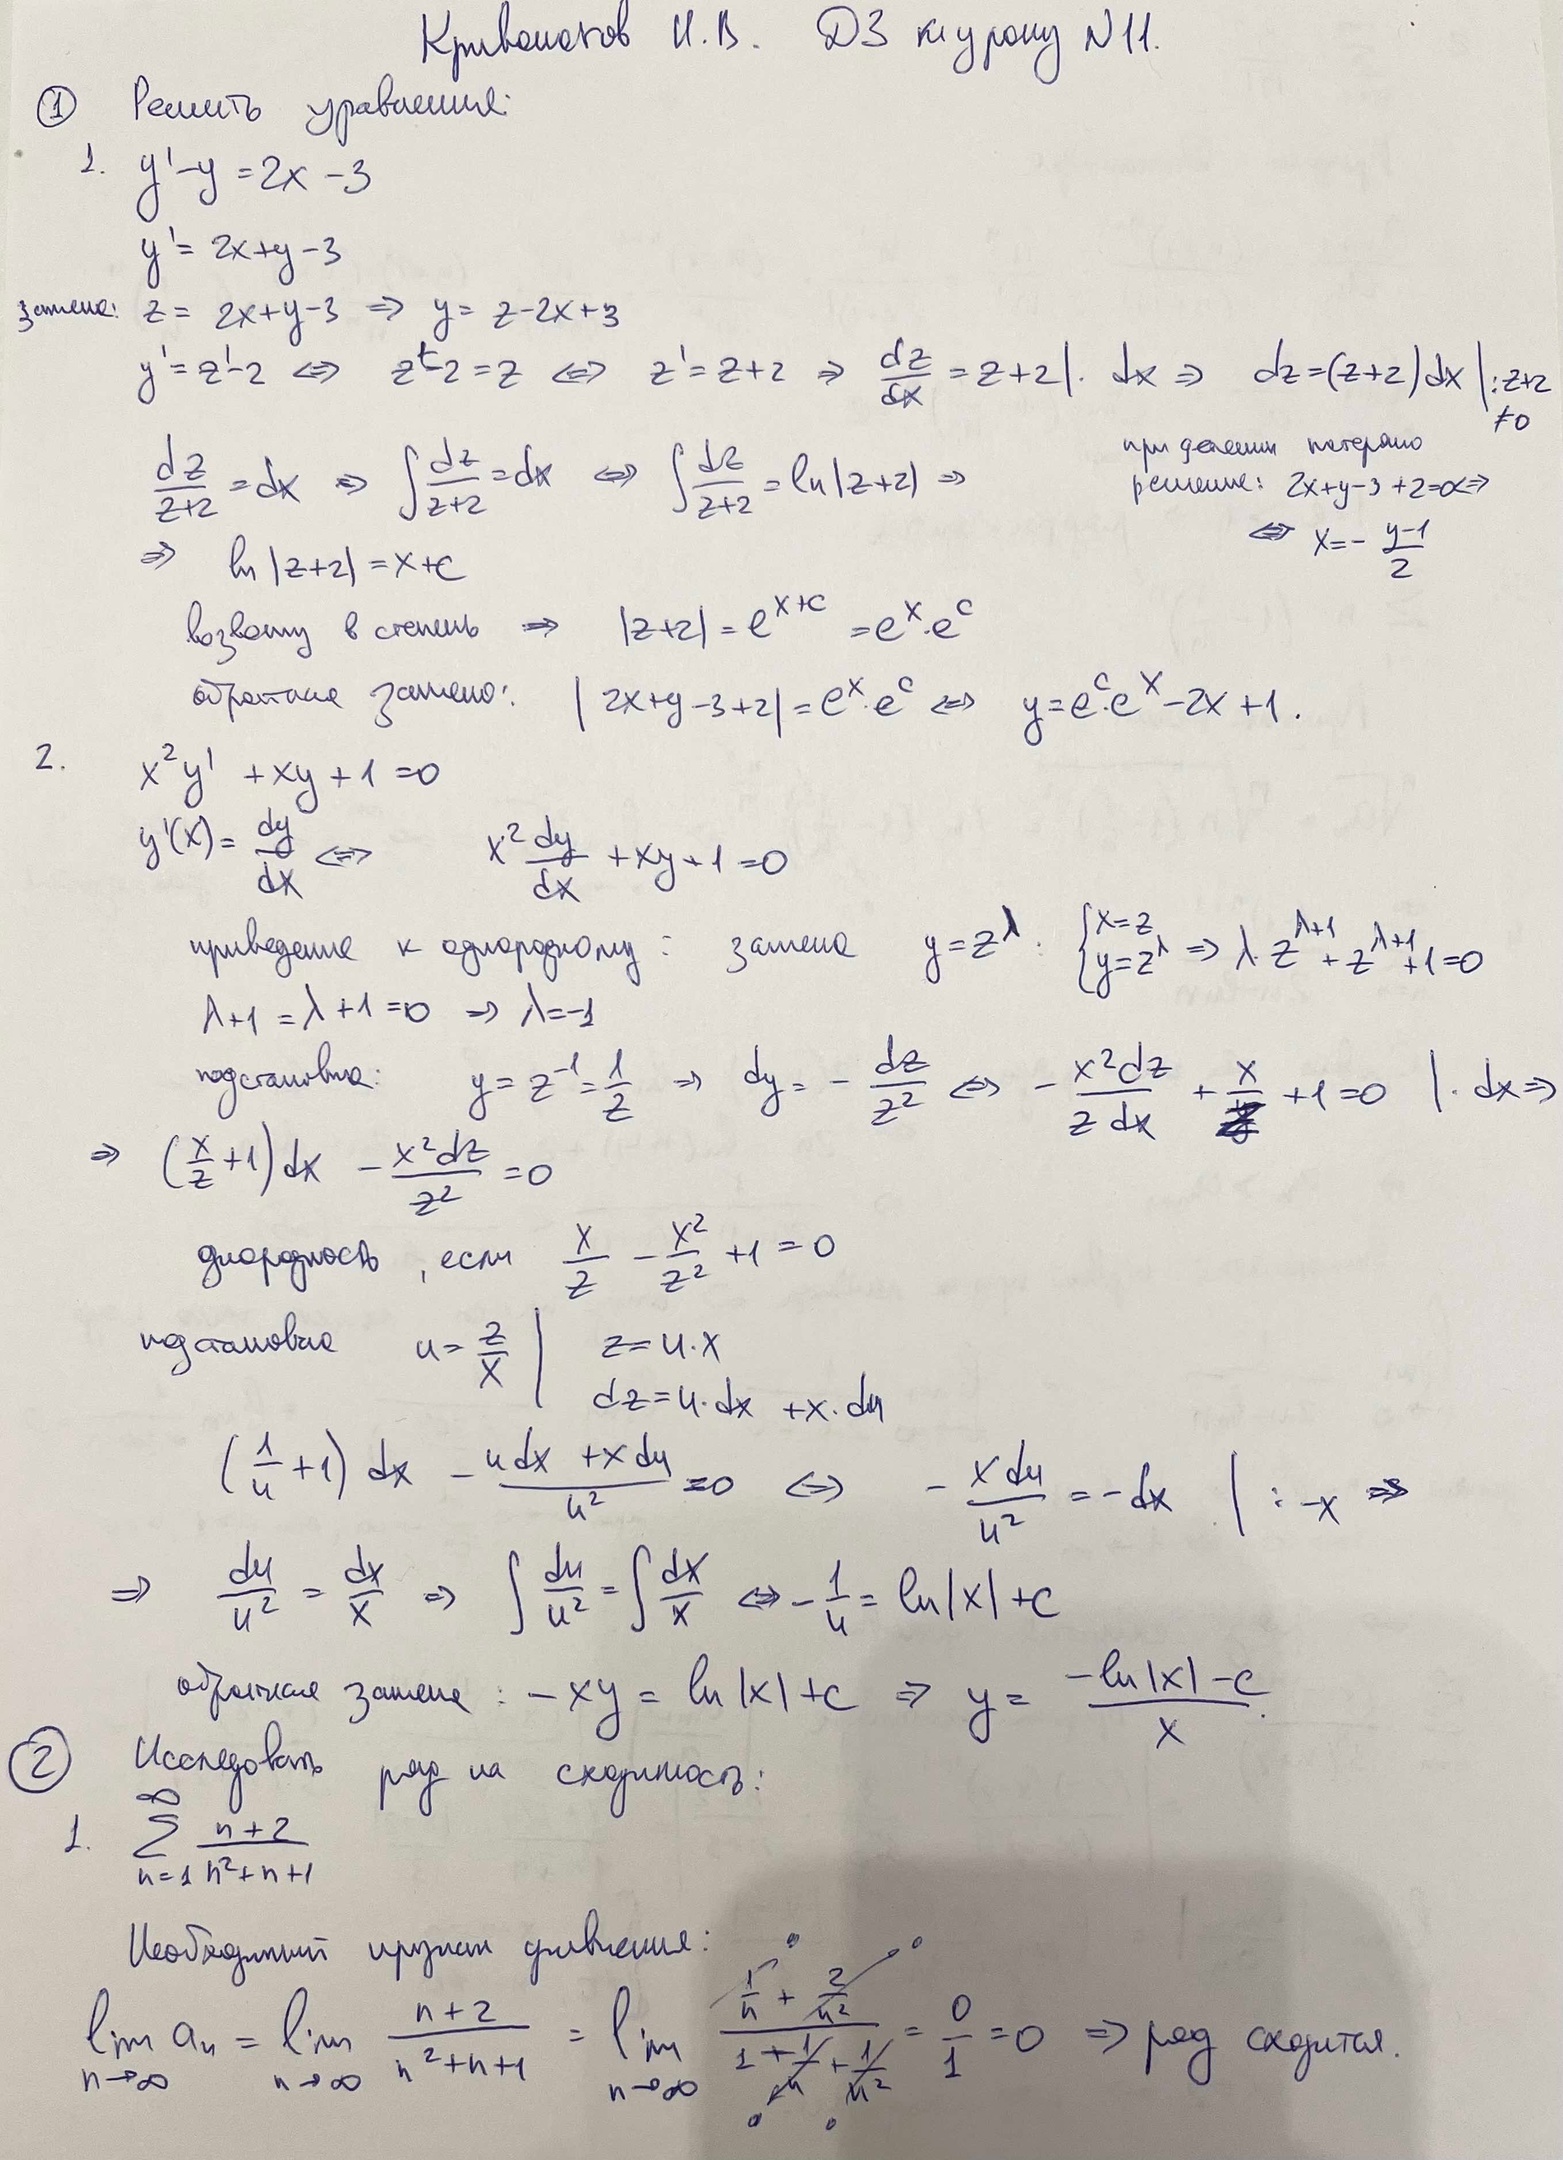 Кривоногов И.В. ДЗ к уроку N11.
① Решить уравнения:
1. y'-y=2x-3
y'=2x+y-3
замена: z=2x+y-3 ⇒ y=z-2x+3
y'=z'-2 ⇔ z'-2=z ⇔ z'=z+2 ⇒ dz/dx=z+2|·dx ⇒ dz=(z+2)dx|:z+2 ≠0
dz/(z+2)=dx ⇒ ∫dz/(z+2)=dx ⇔ ∫dz/(z+2)=ln|z+2| ⇒
при делении потеряно
решение: 2x+y-3+2=0 ⇒
⇔ x=-(y-1)/2
⇒ ln|z+2|=x+c
возвожу в степень ⇒ |z+2|=e^(x+c)=e^x·e^c
обратная замена: |2x+y-3+2|=e^x·e^c ⇔ y=e^c·e^x-2x+1.
2. x²y'+xy+1=0
y'(x)=dy/dx ⇔ x²dy/dx+xy+1=0
приведение к однородному: замена y=z^λ: {x=z y=z^λ ⇒ λ·z^(λ+1)+z^(λ+1)+1=0
λ+1=λ+1=0 ⇒ λ=-1
подстановка: y=z^(-1)=1/z ⇒ dy=-dz/z² ⇔ -x²dz/(z dx)+x/z+1=0 |·dx ⇒
⇒ (x/z+1)dx-x²dz/z²=0
однородность, если x/z-x²/z²+1=0
подстановка u=z/x | z=u·x
dz=u·dx+x·du
(1/u+1)dx-(u dx+x du)/u²=0 ⇔ -x du/u²=-dx |:-x ⇒
⇒ du/u²=dx/x ⇒ ∫du/u²=∫dx/x ⇔ -1/u=ln|x|+c
обратная замена: -xy=ln|x|+c ⇒ y=(-ln|x|-c)/x.
② Исследовать ряд на сходимость:
1. ∑_(n=1)^∞ (n+2)/(n²+n+1)
Необходимый признак сравнения:
lim_(n→∞) a_n=lim_(n→∞) (n+2)/(n²+n+1)=lim_(n→∞) (1/n+2/n²)/(1+1/n+1/n²)=0/1=0 ⇒ ряд сходится.